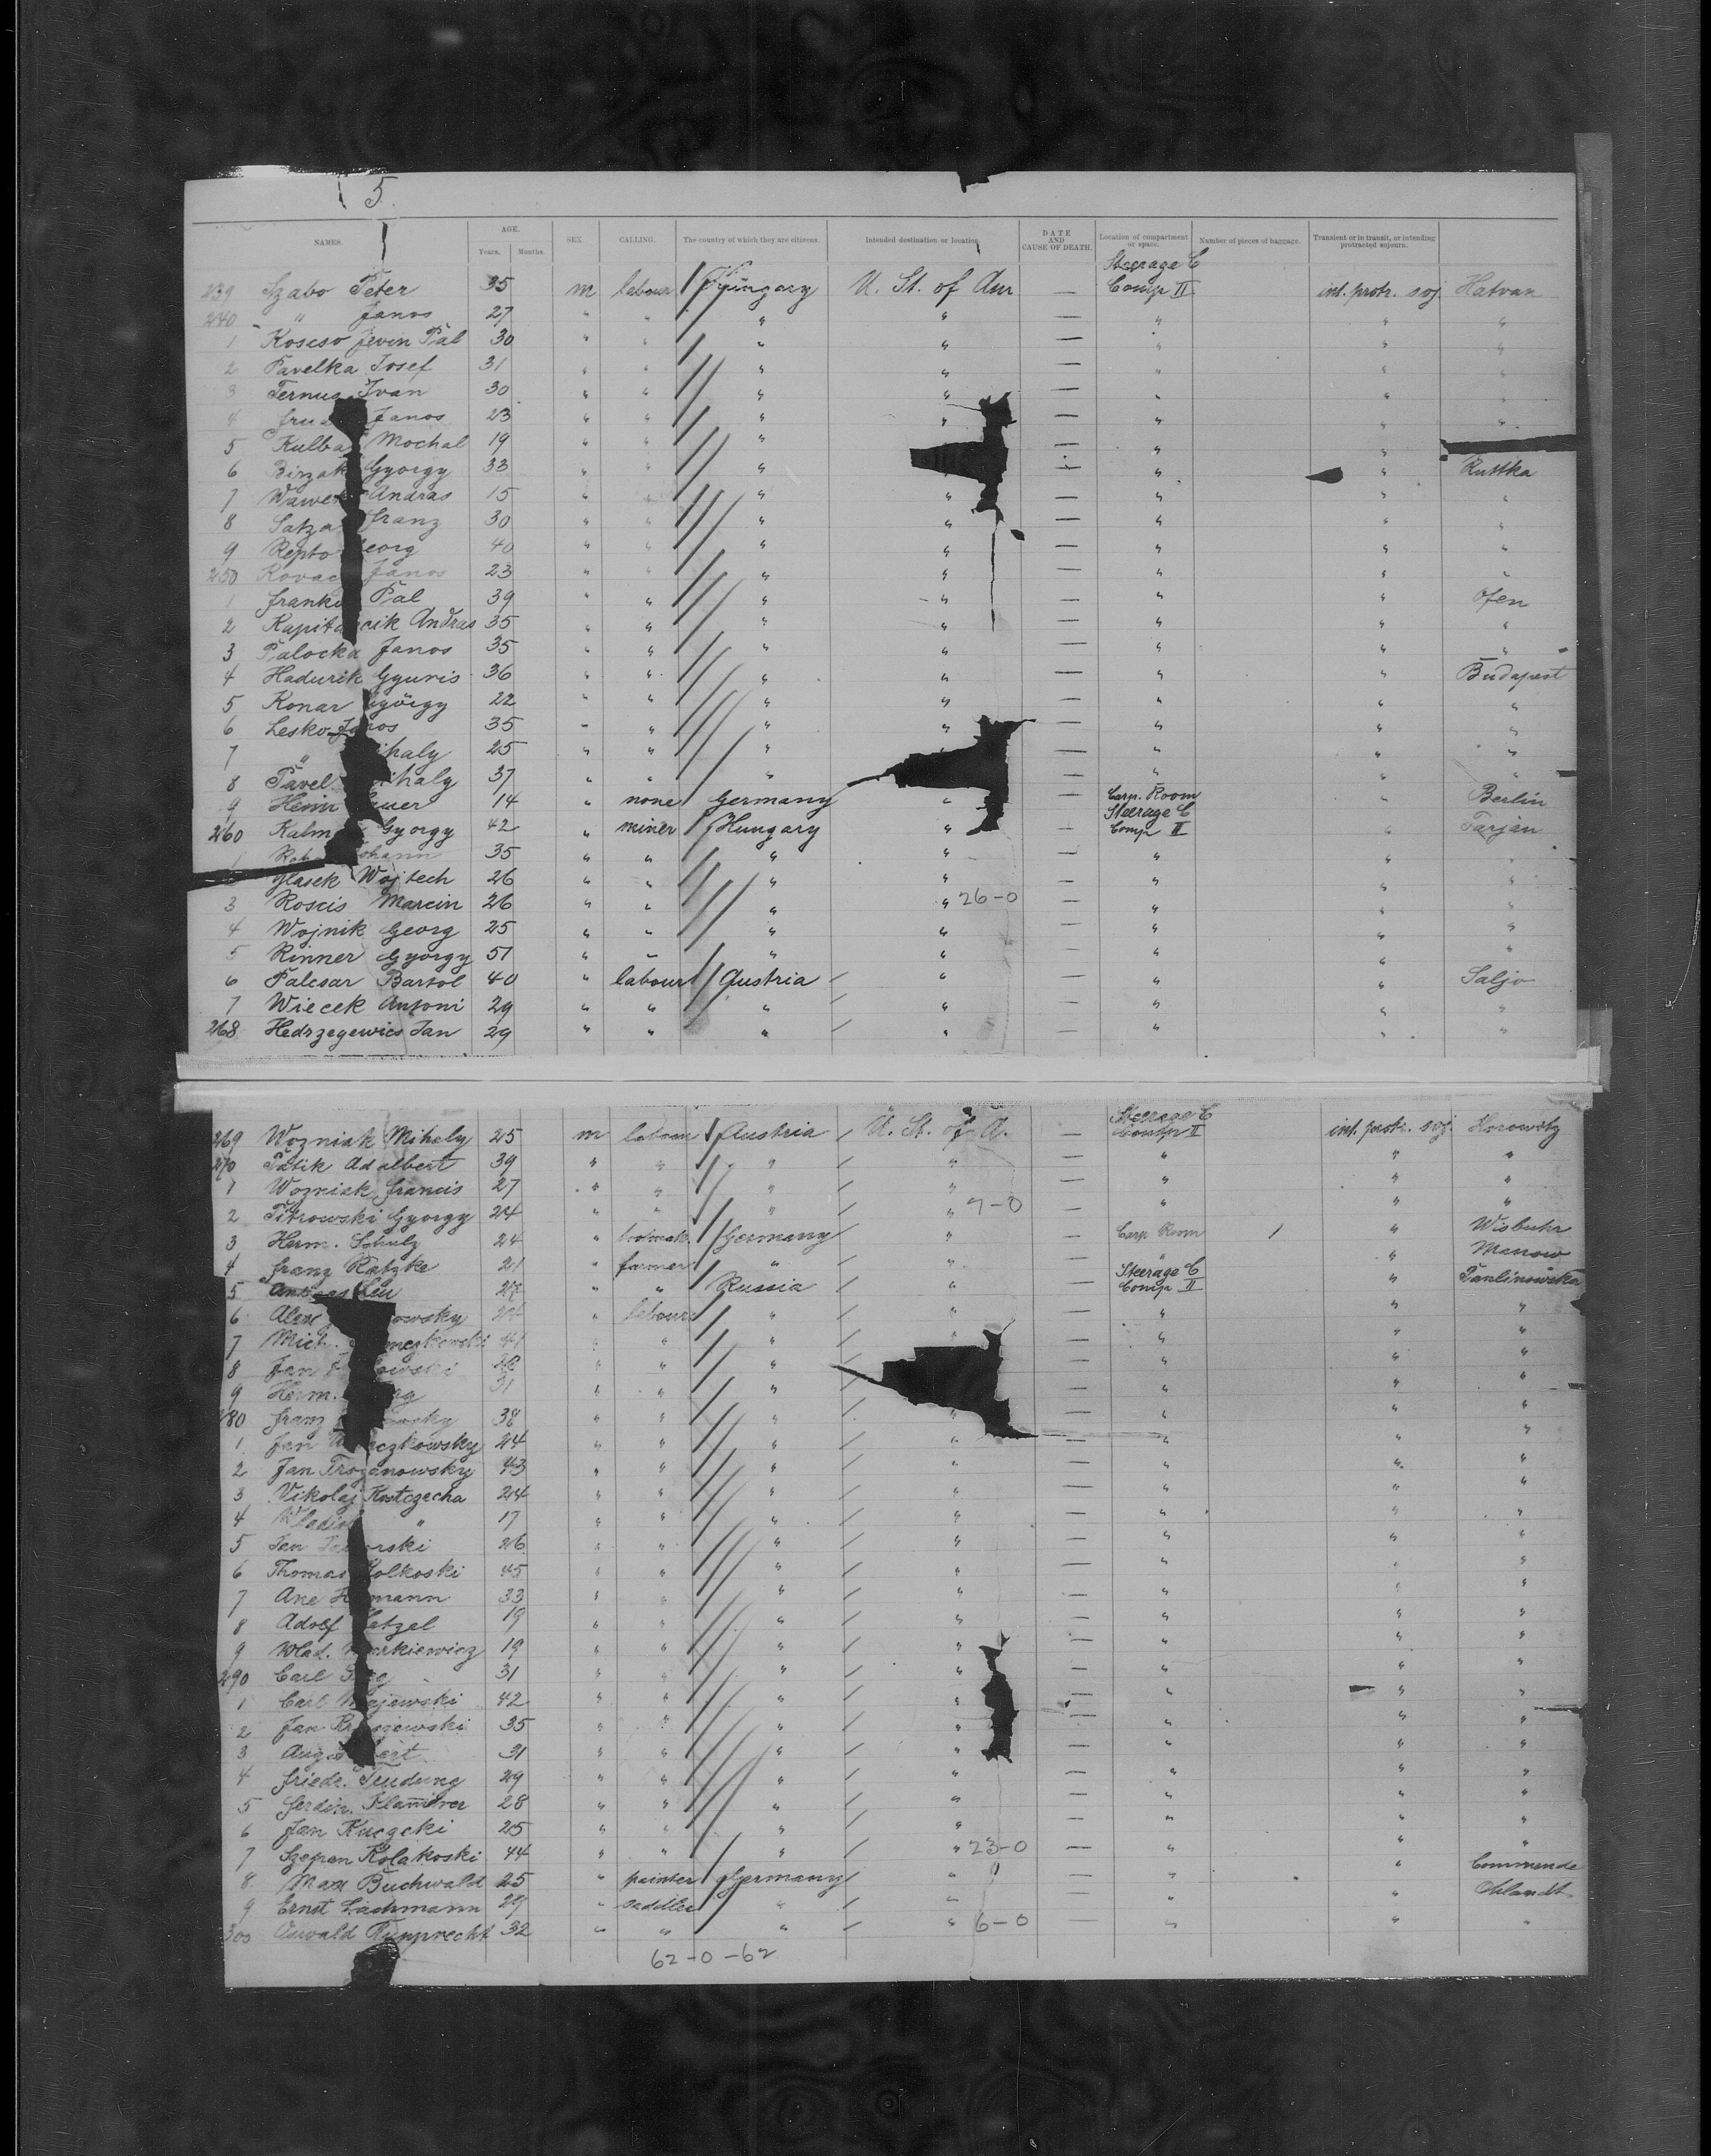 5.
NAMES. AGE. Years. Months. SEX. CALLING. The country of which they are citizens. Intended destination or location DATE AND CAUSE OF DEATH. Location of compartment or space. Number of pieces of baggage. Transient or in transit, or intending protracted sojourn.
239 Szabo Peter 35 m labour Hungary U. St. of Am — Steerage C Comp II int. protr. soj Hatvan
240 " Janos 27 " " " " — " " "
1 Koscso Jevin Pal 30 " " " " — " " "
2 Pavelka Josef 31 " " " " — " " "
3 Ternus Ivan 30 " " " " — " " "
4 Janos 23 " " " " — " " "
5 Kulba Mochal 19 " " " — " "
6 Birzak György 33 " " " — " " Ruttka
7 Wawer Andras 15 " " " " — " " "
8 Satza Franz 30 " " " " — " " "
9 Repto Georg 40 " " " " — " " "
250 Kovac Janos 23 " " " " — " " "
1 Franko Pal 39 " " " " — " " Ofen
2 Kapita cik Andras 35 " " " " — " " "
3 Palocka Janos 35 " " " " — " " "
4 Hadurik Gyuris 36 " " " " — " " Budapest
5 Konar György 22 " " " " — " " "
6 Lesko Janos 35 " " " " — " " "
7 " Mihaly 25 " " " — " " "
8 Pavel Mihaly 37 " " " — " " "
9 Heinr. auer 14 " none Germany " — Carp. Room " Berlin
260 Kalm György 42 " miner Hungary " — Steerage C Comp II " Tarján
1 Johann 35 " " " " — " " "
Glasek Wojtech 26 " " " " — " " "
3 Roscis Marcin 26 " " " " 26-0 — " " "
4 Wojnik Georg 25 " " " " — " " "
5 Rinner György 51 " " " " — " " "
6 Palcsar Bartol 40 " labour Austria " — " " Saljo
7 Wiecek Antoni 29 " " " " — " " "
268 Hedrzegewics Jan 29 " " " " — " " "
269 Wozniak Mihaly 25 m labour Austria U. St. of A. — Steerage C Comp II int. protr. soj. Horowitz
270 Patik Adalbert 39 " " " " — " " "
1 Wozniak Francis 27 " " " " — " " "
2 Pitrowski György 24 " " " " 7-0 — " " "
3 Herm. Schulz 24 " Germany " — Carp Room 1 " Wisbuhr
4 Franz Ratzke 21 " farmer " " — " " Manow
5 27 " " Russia " — Steerage C Comp II " Panlinowska
6 Alex owsky " labour " " — " " "
7 Mich. mczkowski 41 " " " " — " " "
8 Jan owski " " " — " " "
9 Herm. 31 " " " — " " "
280 Franz 38 " " " " — " " "
1 Jan czkowsky 24 " " " " — " " "
2 Jan Trozanowsky 43 " " " " — " " "
3 Nikolaj Kostczecha 24 " " " " — " " "
4 Wladisl " 17 " " " " — " " "
5 Jan orski 26 " " " " — " " "
6 Thomas Kolkoski 45 " " " " — " " "
7 Ane H mann 33 " " " " — " " "
8 Adolf etzel 19 " " " " — " " "
9 Wlad. arkiewicz 19 " " " " — " " "
290 Carl 31 " " " " — " " "
1 Carl Majewski 42 " " " " — " " "
2 Jan ewski 35 " " " " — " " "
3 Aug. ert 31 " " " " — " " "
4 Friedr. Teudung 29 " " " " — " " "
5 Ferdin. Flammer 28 " " " " — " " "
6 Jan Kuczcki 25 " " " " — " " "
7 Szepan Kolakoski 44 " " " " 23-0 — " " "
8 Max Buchwald 25 " painter Germany " — " " Commende
9 Ernst Lachmann 29 " saddler " " — " " Ohlandt
300 Oswald Rupprecht 32 " " " " 6-0 — " " "
62-0-62